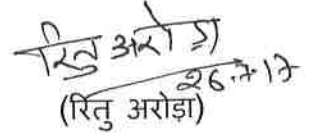 रितु अरोड़ा
26.7.17
(रितु अरोड़ा)